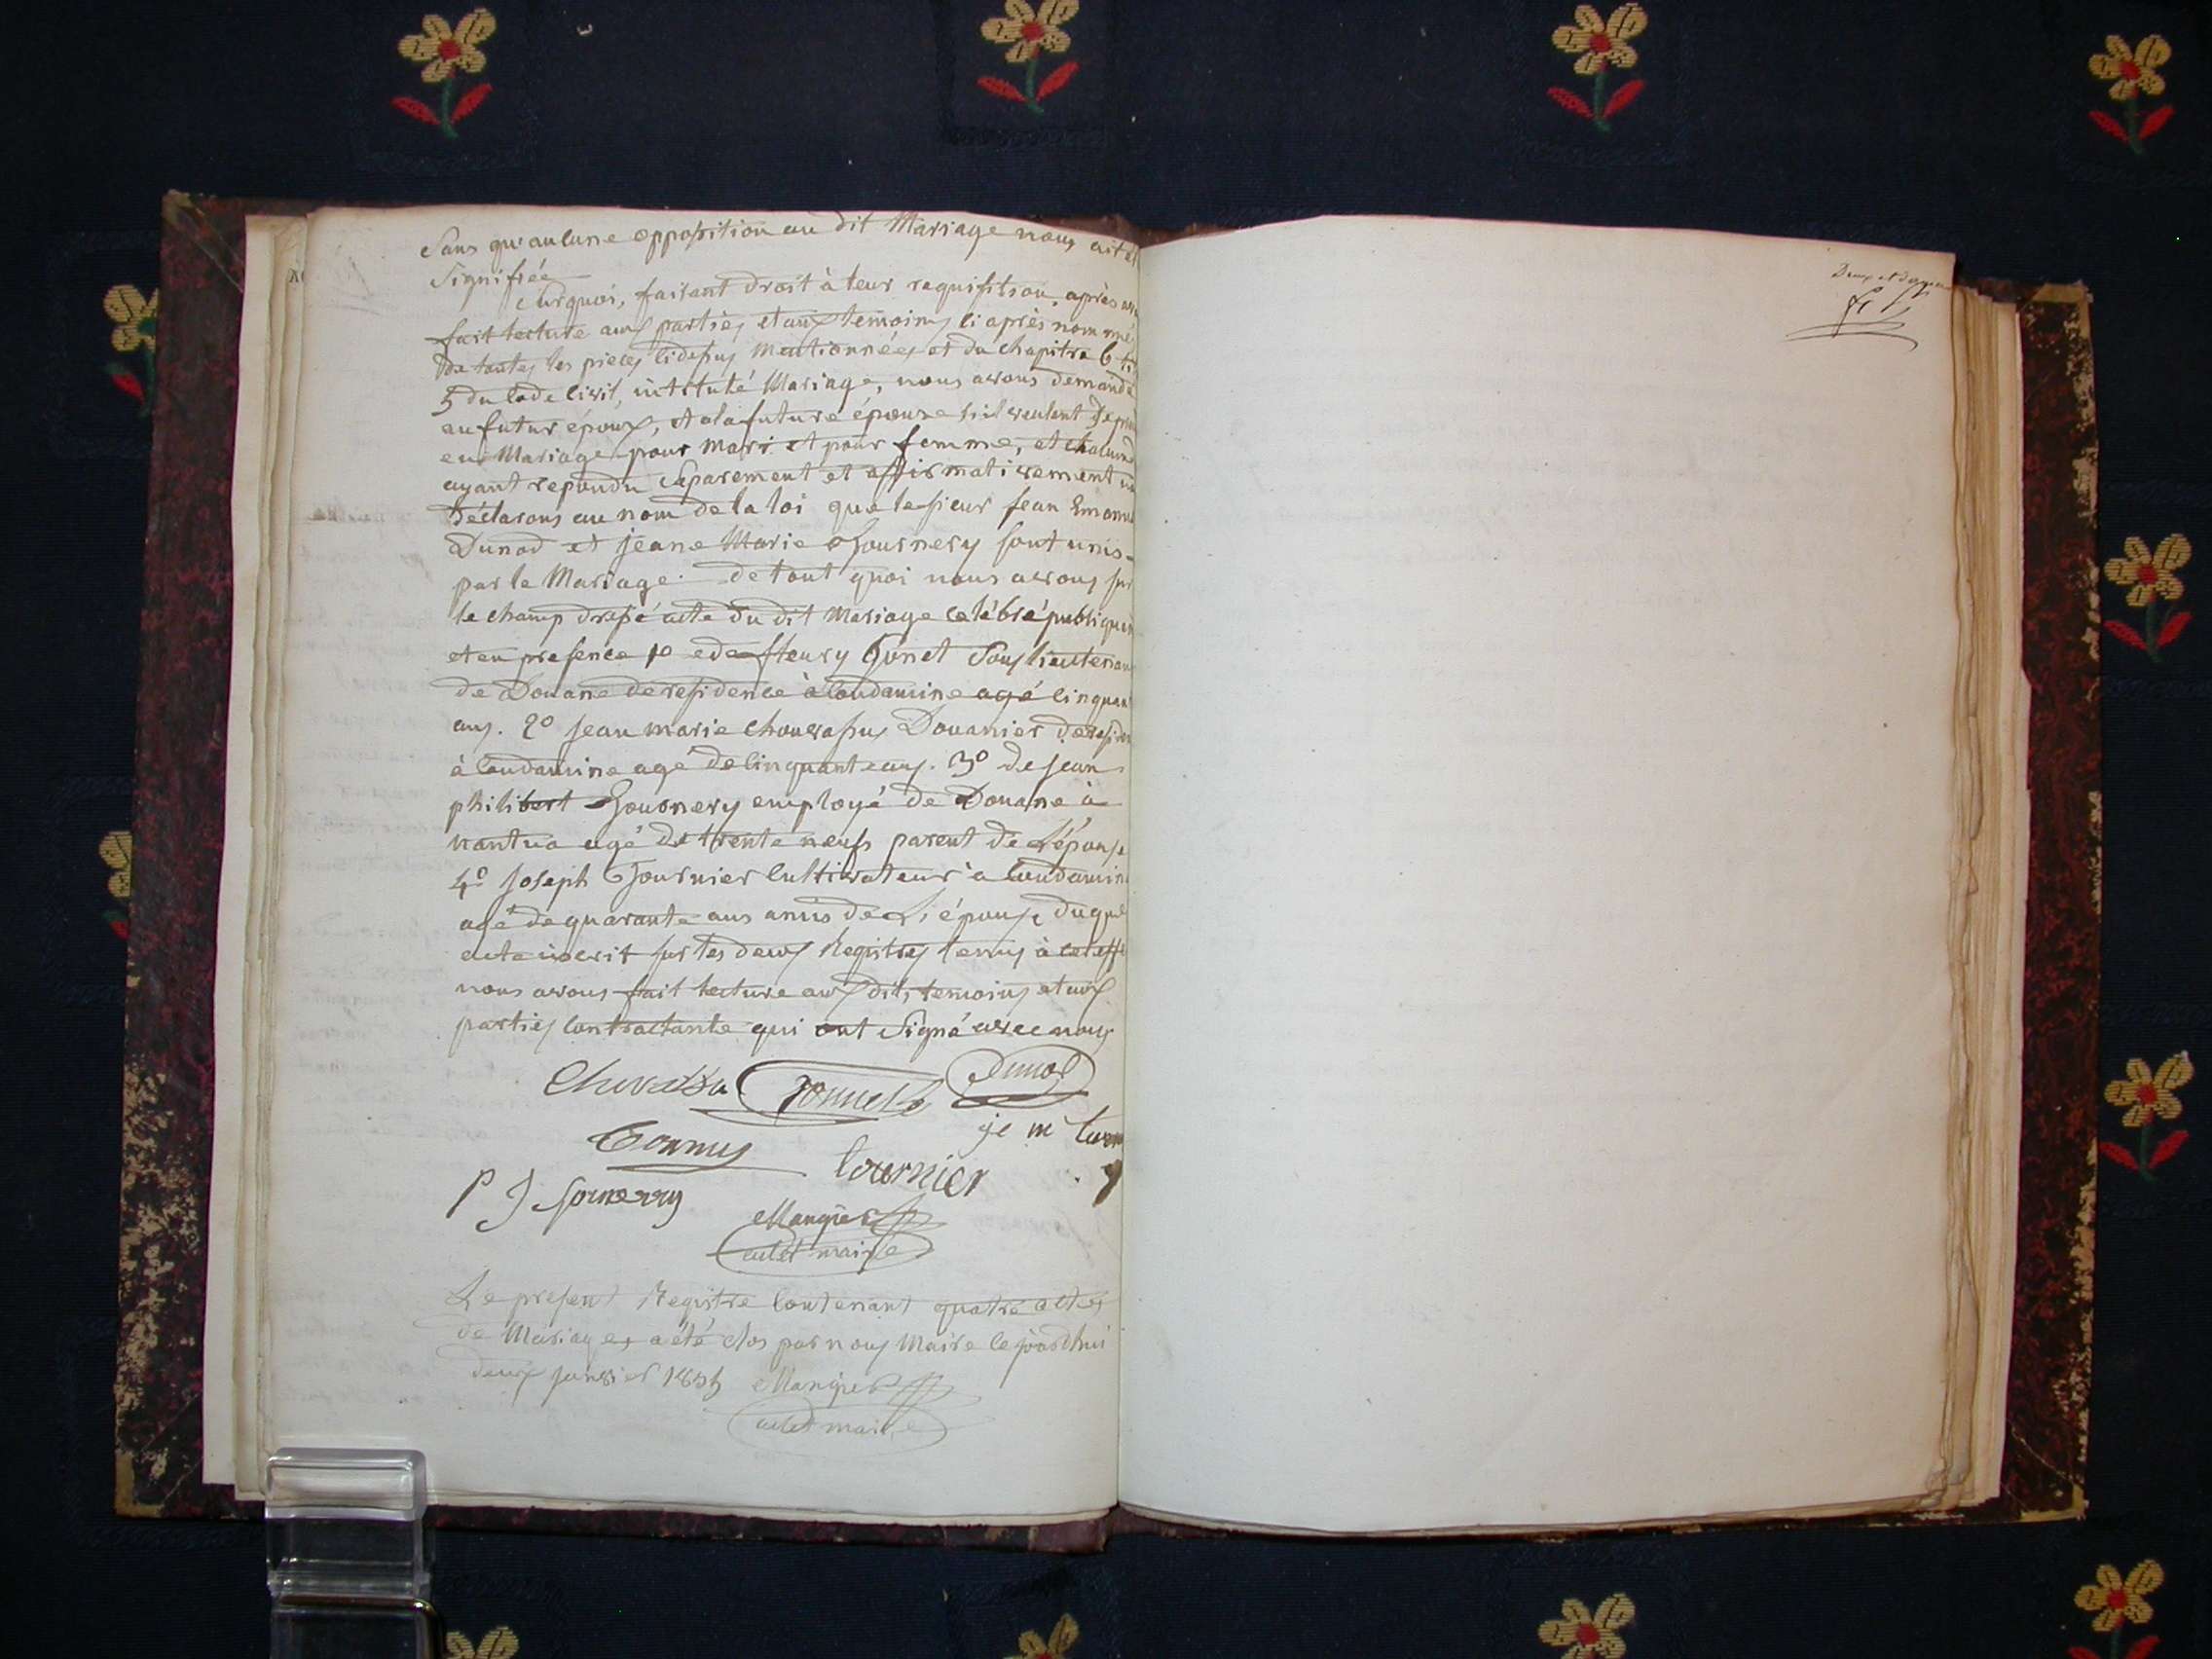 Sans qu'aucune opposition au dit Mariage nous ait
Signifiée
Surquoi, faisant droit à leur requisition, après
fait lecture aux parties et aux temoins ci après nommé
de toutes les pieces cidessus mentionnées et du chapitre 6
5 du Code Civil, intitulé Mariage, nous avons demandé
au futur époux, et a la future épouse s'il veulent se
en Mariage pour mari et pour femme, et chacun
ayant repondu Separement et affirmativement
déclarons au nom de la loi que le sieur Jean
Dunod et Jeane Marie sont unis
par le Mariage. de tout quoi nous avons sur
le champ dressé acte du dit Mariage celébré
et en presence 1o de fleury Gonet Sous lieutenan
de Douane de residence à Condamine agé cinquan
ans. 2o Jean marie Douanier de
à Condamine agé de cinquante ans. 3o de Jean
philibert employé de Douane à
nantua agé de trente neufs parent de L'épouse
4o Joseph cultivateur à Condamin
agé de quarante ans amis de L'épouse
acte inscrit sur les deux Registres tenus à cet eff
nous avons fait lecture aux dits temoins et aux
parties contractante qui ont Signé avec nous
Dunod
je m
Tournier
P J
Mangier
adjt maire
Le present Registre Contenant quatre actes
de Mariages a été clos par nous Maire cejourdhui
deux janvier Mangier
adjt maire